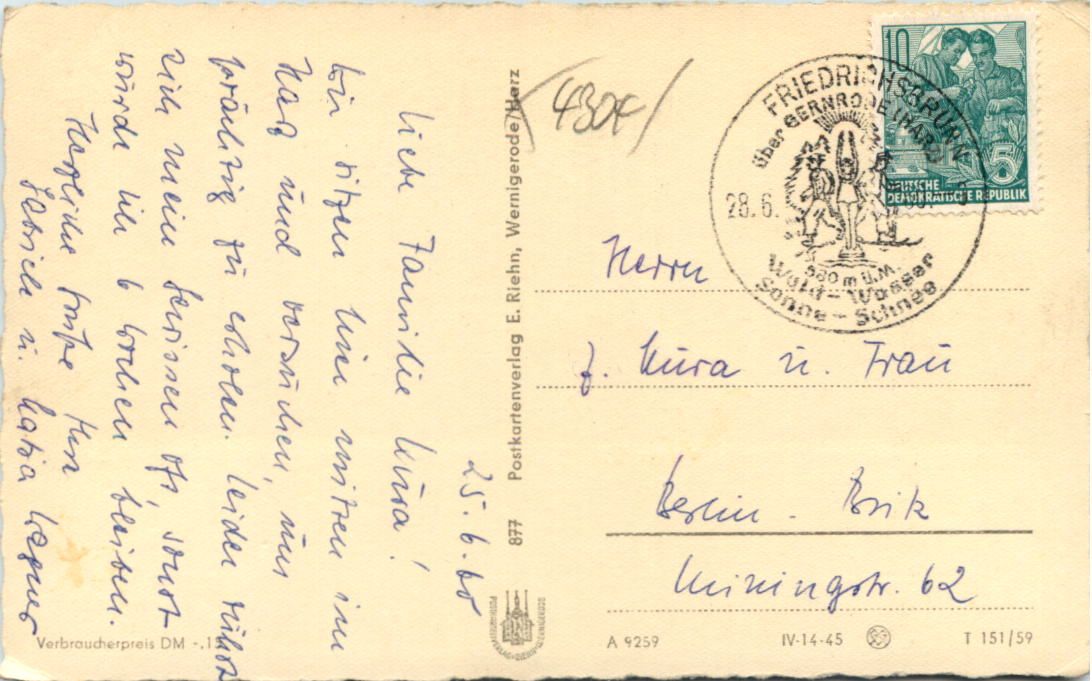 25.6.60
Liebe Familie Kura!
Wir sitzen hier mitten im
Harz und versuchen, uns
prächtig zu erholen. Leider rührt
sich mein Gewissen oft, sonst
würde ich 6 Wochen bleiben.
Herzliche Grüße Ihre
Gabriele u. Katja Wagner
Verbraucherpreis DM -.1
877 Postkartenverlag E. Riehn, Wernigerode/Harz
430+
10
5
DEUTSCHE
DEMOKRATISCHE REPUBLIK
FRIEDRICHSBRUNN
über GERNRODE (HARZ)
28.6.
580 m ü.M.
Wald - Wasser
Sonne - Schnee
Herrn
J. Kura u. Frau
Berlin - Britz
Miningstr. 62
A 9259
IV-14-45
T 151/59